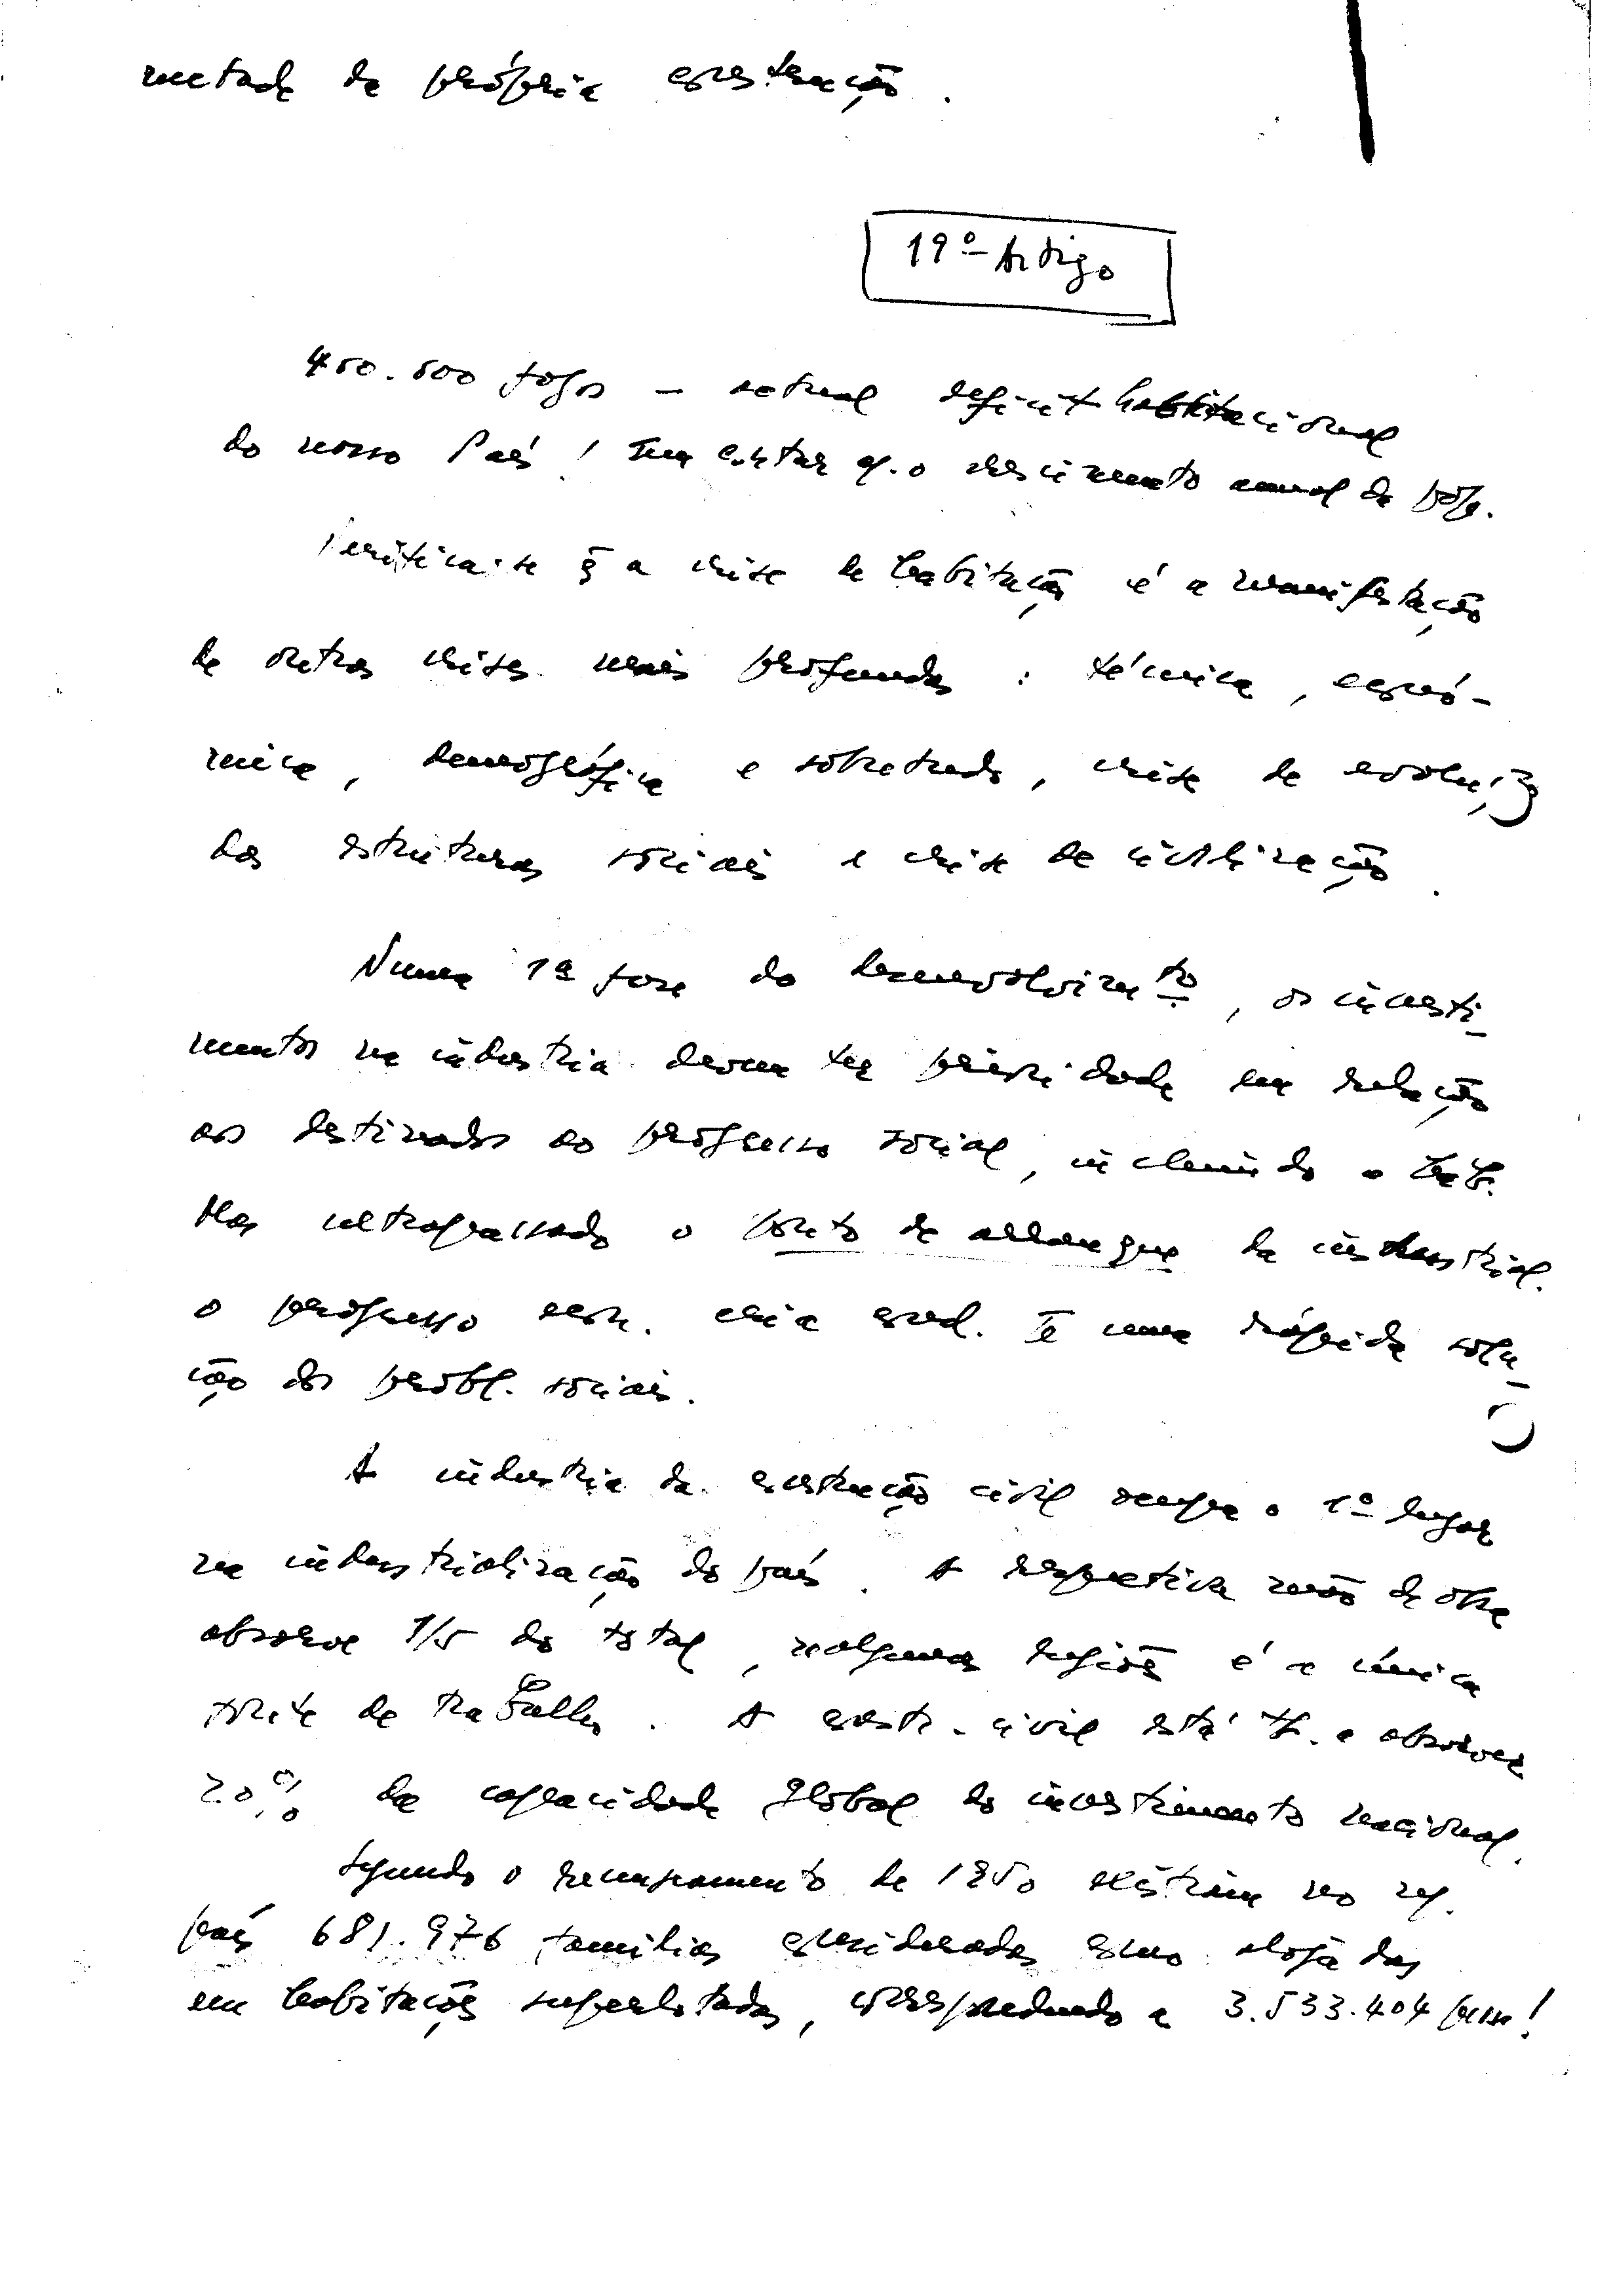 metade da própria construção.
19º Artigo
450.500 fogos — actual deficit habitacional
do nosso País! Sem contar c. o crescimento anual da pop.
Verifica-se q̄ a crise de habitação é a manifestação
de outras crises mais profundas: técnica, econó-
mica, demográfica e sobretudo, crise de evolução
das estruturas sociais e crise de civilização.
Numa 1ª fase do desenvolvimto, os investi-
mentos na industria devem ter prioridade em relação
aos destinados ao progresso social, incluindo a hab.
Mas ultrapassado o ponto de arranque da industrial.
o progresso econ. cria cond. p̄ uma rápida solu-
ção dos probl. sociais.
A industria da construção civil ocupa o 1º lugar
na industrialização do país. A respectiva mão de obra
absorve 1/5 do total, nalgumas regiões é a única
fonte de trabalho. A constr. civil está tb. a absorver
20% da capacidade global do investimento nacional.
Segundo o recenseamento de 1950 existiam no
país 681.976 familias consideradas como alojadas
em habitações superlotadas, correspondendo a 3.533.404 pesso!